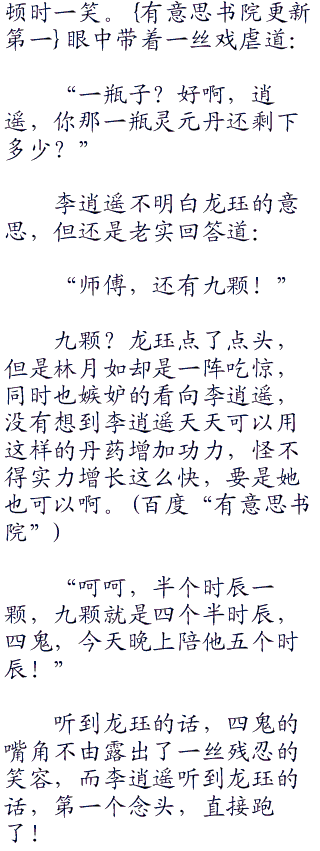 顿时一笑。{有意思书院更新
第一}眼中带着一丝戏虐道：
“一瓶子？好啊，逍
遥，你那一瓶灵元丹还剩下
多少？”
李逍遥不明白龙珏的意
思，但还是老实回答道：
“师傅，还有九颗！”
九颗？龙珏点了点头，
但是林月如却是一阵吃惊，
同时也嫉妒的看向李逍遥，
没有想到李逍遥天天可以用
这样的丹药增加功力，怪不
得实力增长这么快，要是她
也可以啊。(百度“有意思书
院”)
“呵呵，半个时辰一
颗，九颗就是四个半时辰，
四鬼，今天晚上陪他五个时
辰！”
听到龙珏的话，四鬼的
嘴角不由露出了一丝残忍的
笑容，而李逍遥听到龙珏的
话，第一个念头，直接跑
了！